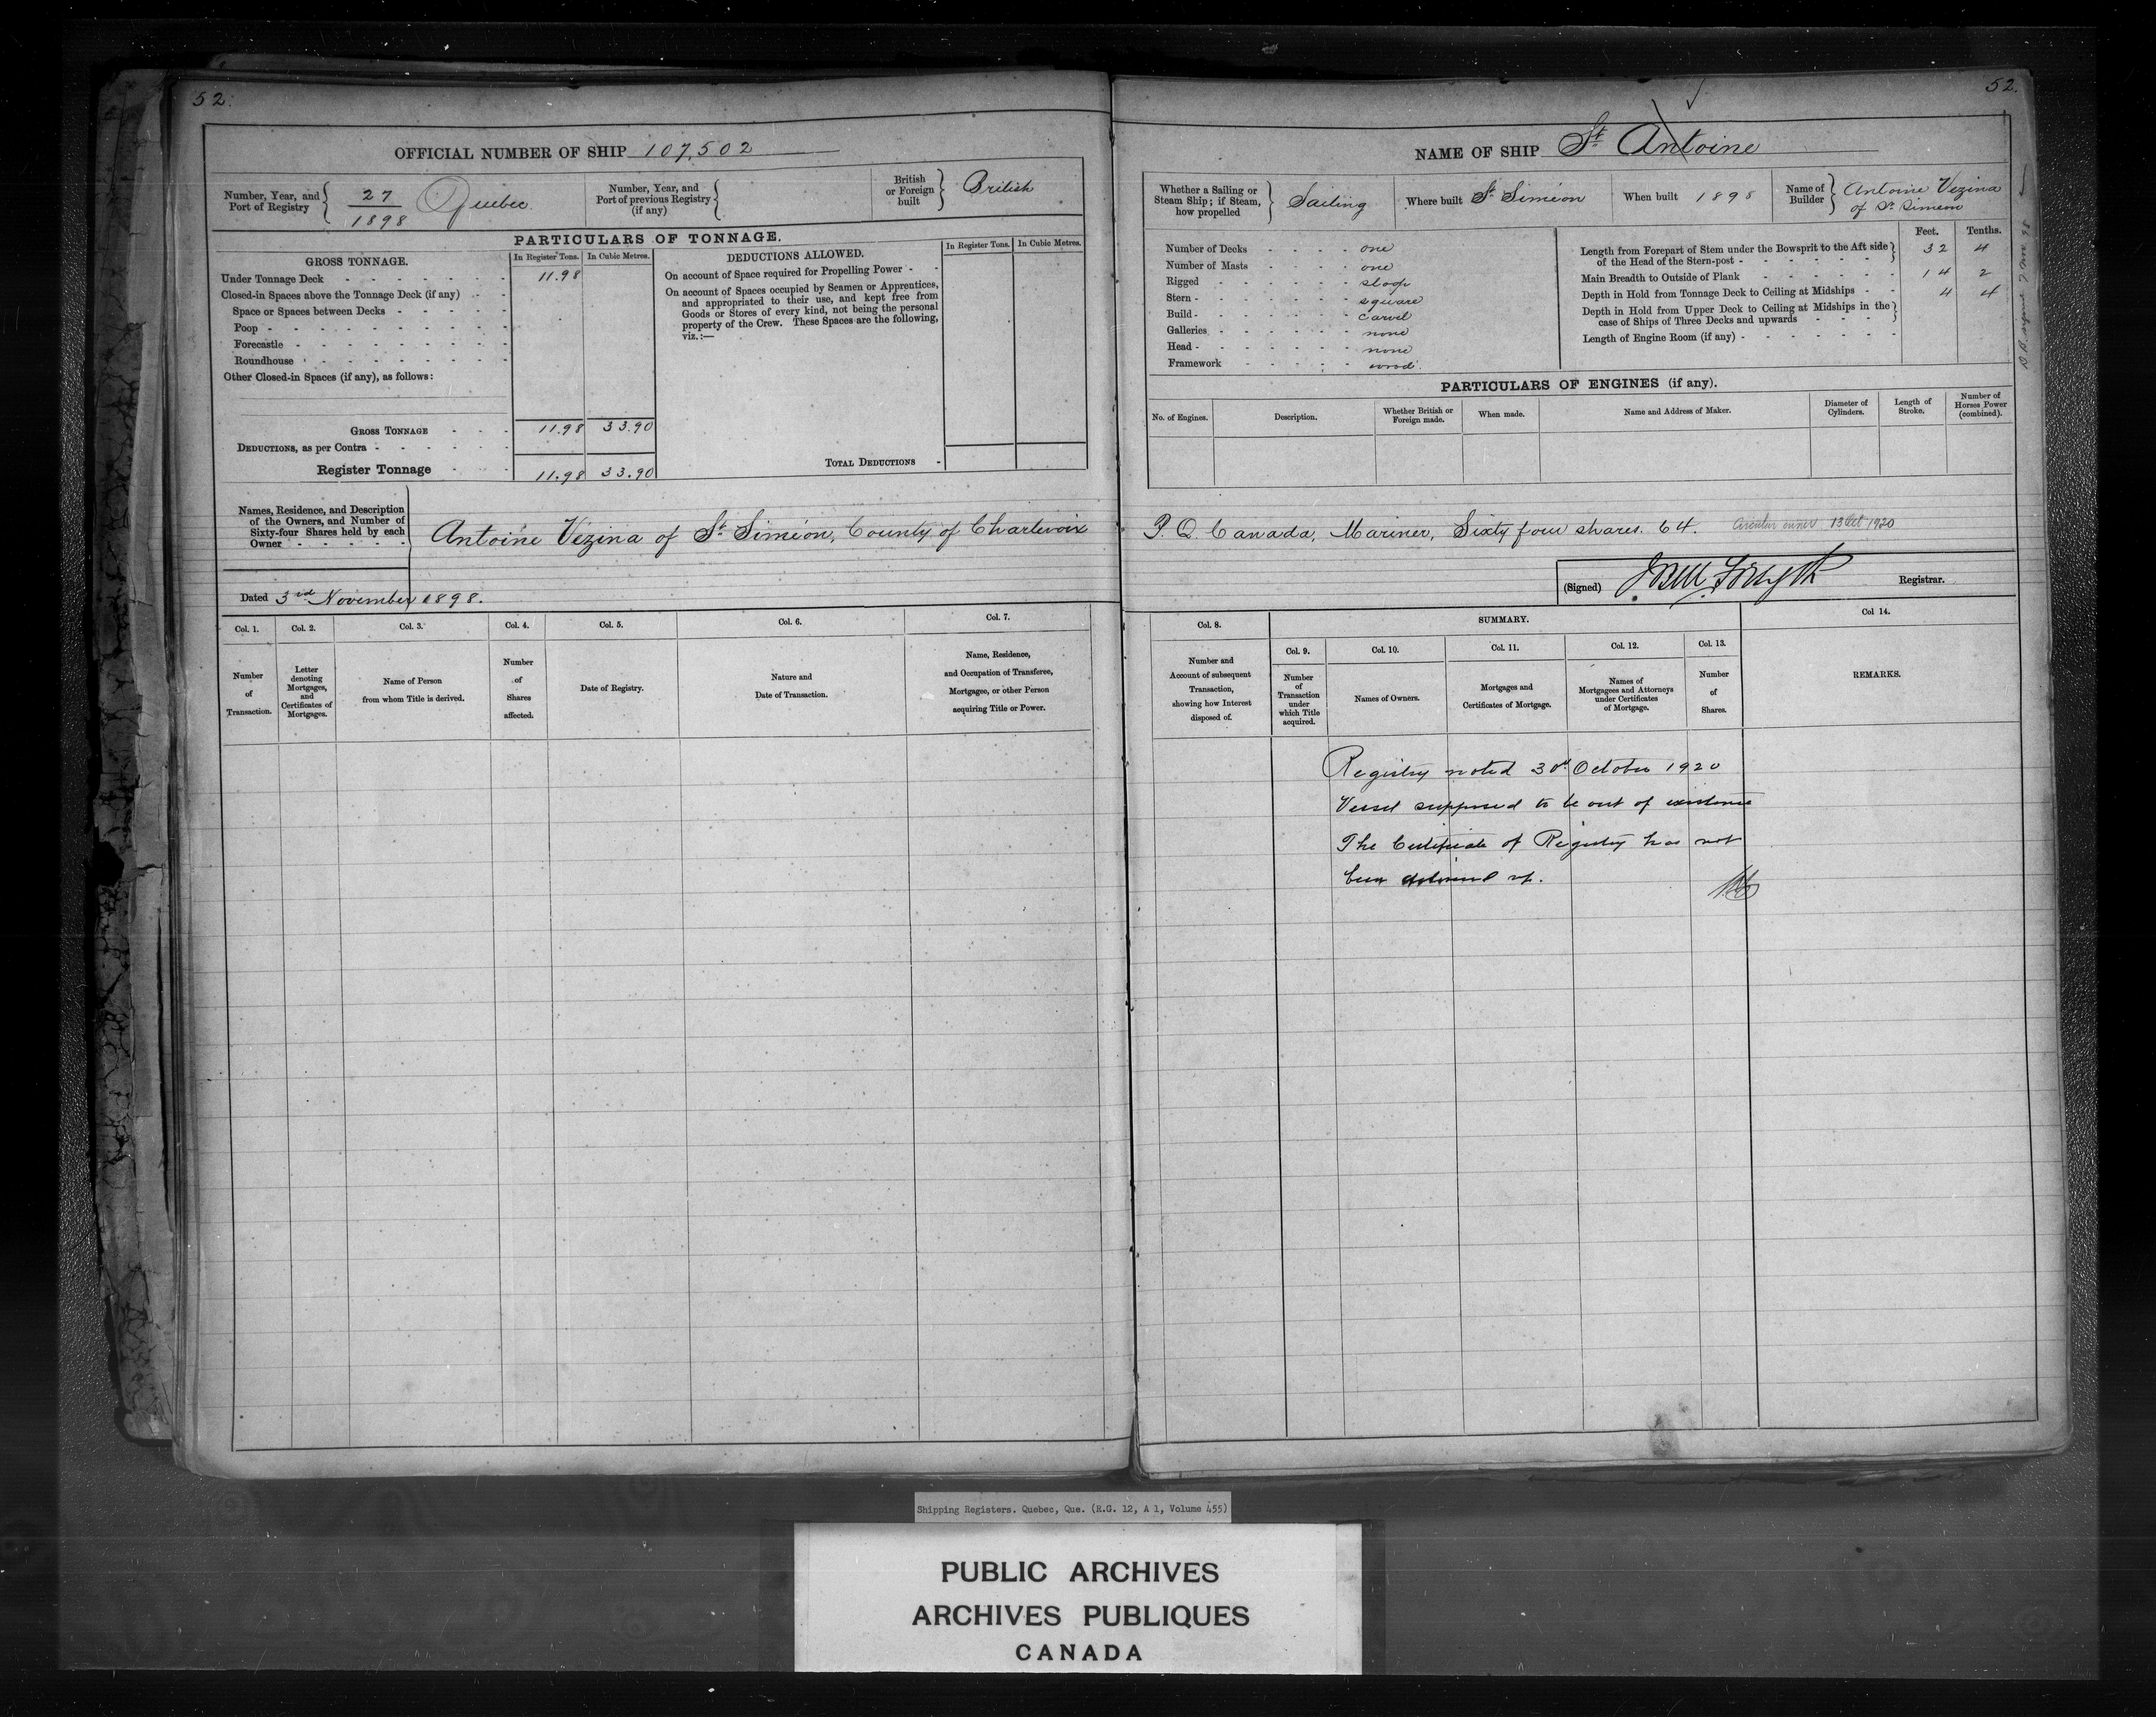 52.
OFFICIAL NUMBER OF SHIP 107,502
Number, Year, and Port of Registry 27 / 1898 Quebec.
Number, Year, and Port of previous Registry (if any)
British or Foreign built British
PARTICULARS OF TONNAGE.
GROSS TONNAGE. In Register Tons. In Cubic Metres.
Under Tonnage Deck - - - - - - 11.98
Closed-in Spaces above the Tonnage Deck (if any) - -
Space or Spaces between Decks - - - - -
Poop - - - - - - - - -
Forecastle - - - - - - - -
Roundhouse - - - - - - - -
Other Closed-in Spaces (if any), as follows:
GROSS TONNAGE - - - 11.98 33.90
DEDUCTIONS, as per Contra - - - - - -
Register Tonnage - - 11.98 33.90
DEDUCTIONS ALLOWED. In Register Tons. In Cubic Metres.
On account of Space required for Propelling Power - -
On account of Spaces occupied by Seamen or Apprentices,
and appropriated to their use, and kept free from
Goods or Stores of every kind, not being the personal
property of the Crew. These Spaces are the following,
viz.:—
TOTAL DEDUCTIONS -
Names, Residence, and Description
of the Owners, and Number of
Sixty-four Shares held by each
Owner - - - - -
Antoine Vézina of St Siméon, County of Charlevoix
Dated 3rd November 1898.
Col. 1. Col. 2. Col. 3. Col. 4. Col. 5. Col. 6. Col. 7.
Number of Transaction.
Letter denoting Mortgages, and Certificates of Mortgages.
Name of Person from whom Title is derived.
Number of Shares affected.
Date of Registry.
Nature and Date of Transaction.
Name, Residence, and Occupation of Transferee, Mortgagee, or other Person acquiring Title or Power.
52.
NAME OF SHIP St Antoine
Whether a Sailing or Steam Ship; if Steam, how propelled Sailing
Where built St Siméon
When built 1898
Name of Builder Antoine Vezina
of St Simeon
Number of Decks - - - - one
Number of Masts - - - - one
Rigged - - - - - - - sloop
Stern - - - - - - - - square
Build - - - - - - - - carvel
Galleries - - - - - - - none
Head - - - - - - - - none
Framework - - - - - - wood.
Feet. Tenths.
Length from Forepart of Stem under the Bowsprit to the Aft side
of the Head of the Stern-post - - - - - - - 32 4
Main Breadth to Outside of Plank - - - - - - 14 2
Depth in Hold from Tonnage Deck to Ceiling at Midships - - 4 4
Depth in Hold from Upper Deck to Ceiling at Midships in the
case of Ships of Three Decks and upwards - - - -
Length of Engine Room (if any) - - - - - - - -
PARTICULARS OF ENGINES (if any).
No. of Engines. Description. Whether British or Foreign made. When made. Name and Address of Maker. Diameter of Cylinders. Length of Stroke. Number of Horses Power (combined).
P. Q. Canada, Mariner, Sixty four shares. 64. Circular owner 13 Oct 1920
(Signed) J Bell Forsyth Registrar.
Col. 8. SUMMARY. Col 14.
Col. 9. Col. 10. Col. 11. Col. 12. Col. 13.
Number and Account of subsequent Transaction, showing how Interest disposed of.
Number of Transaction under which Title acquired.
Names of Owners.
Mortgages and Certificates of Mortgage.
Names of Mortgagees and Attorneys under Certificates of Mortgage.
Number of Shares.
REMARKS.
Registry noted 30th October 1920
Vessel supposed to be out of existence
The Certificate of Registry has not
been delivered up.
Shipping Registers. Quebec, Que. (R.G. 12, A 1, Volume 455)
PUBLIC ARCHIVES
ARCHIVES PUBLIQUES
CANADA